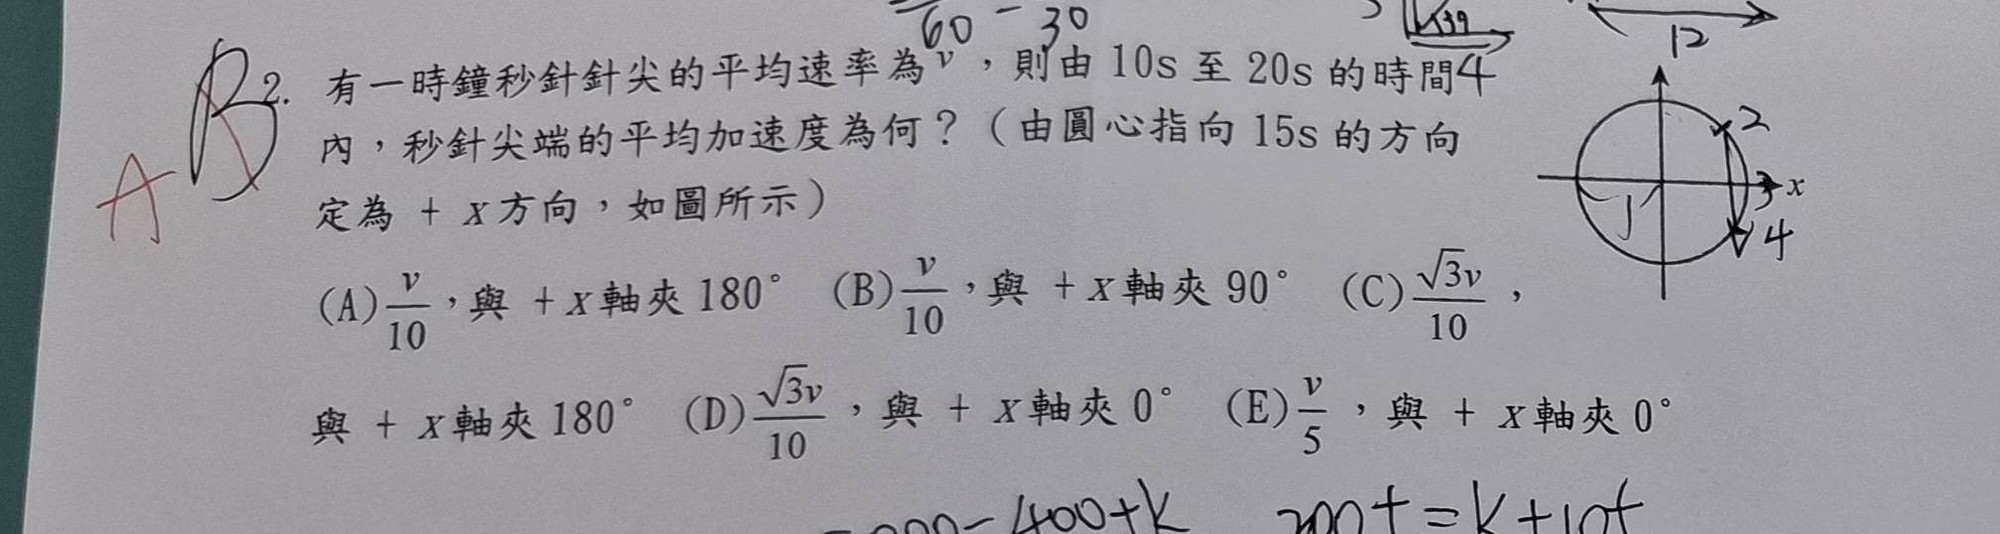 60 - 30
12
2. 有一時鐘秒針針尖的平均速率為 v，則由 10s 至 20s 的時間4
內，秒針尖端的平均加速度為何？（由圓心指向 15s 的方向
定為 + x 方向，如圖所示）
B
A
2
3 x
4
(A) v/10，與 + x 軸夾 180° (B) v/10，與 + x 軸夾 90° (C) √3v/10，
與 + x 軸夾 180° (D) √3v/10，與 + x 軸夾 0° (E) v/5，與 + x 軸夾 0°
-400+k 200t=k+10t